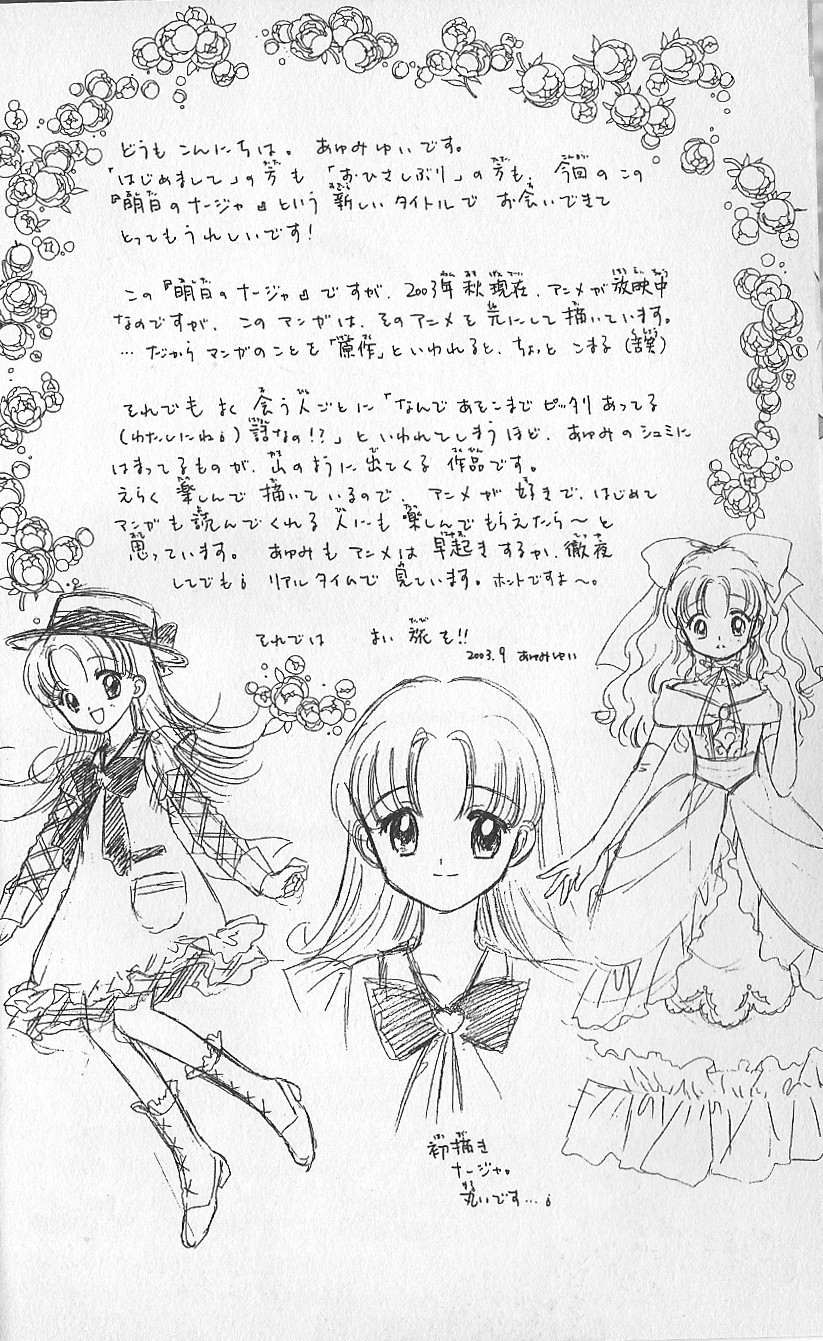 どうも こんにちは。 あゆみゆいです。
「はじめまして」の方も 「おひさしぶり」の方も、今回のこの
『明日のナージャ』という 新しいタイトルで お会いできて
とってもうれしいです!
この『明日のナージャ』ですが、2003年秋現在、アニメが放映中
なのですが、このマンガは、そのアニメを元にして描いています。
…だからマンガのことを「原作」といわれると、ちょっと こまる(苦笑)
それでもよく会う人ごとに「なんであそこまでピッタリあってる
(わたしにね)話なの!?」といわれてしまうほど、あゆみのシュミに
はまってるものが、山のように出てくる作品です。
えらく楽しんで描いているので、アニメが好きで、はじめて
マンガも読んでくれる人にも楽しんでもらえたら〜と
思っています。 あゆみもアニメは早起きするか、徹夜
してでも リアルタイムで見ています。ホントですよ〜。
それでは よい旅を!!
2003.9 あゆみゆい
初描き
ナージャ。
丸いです…